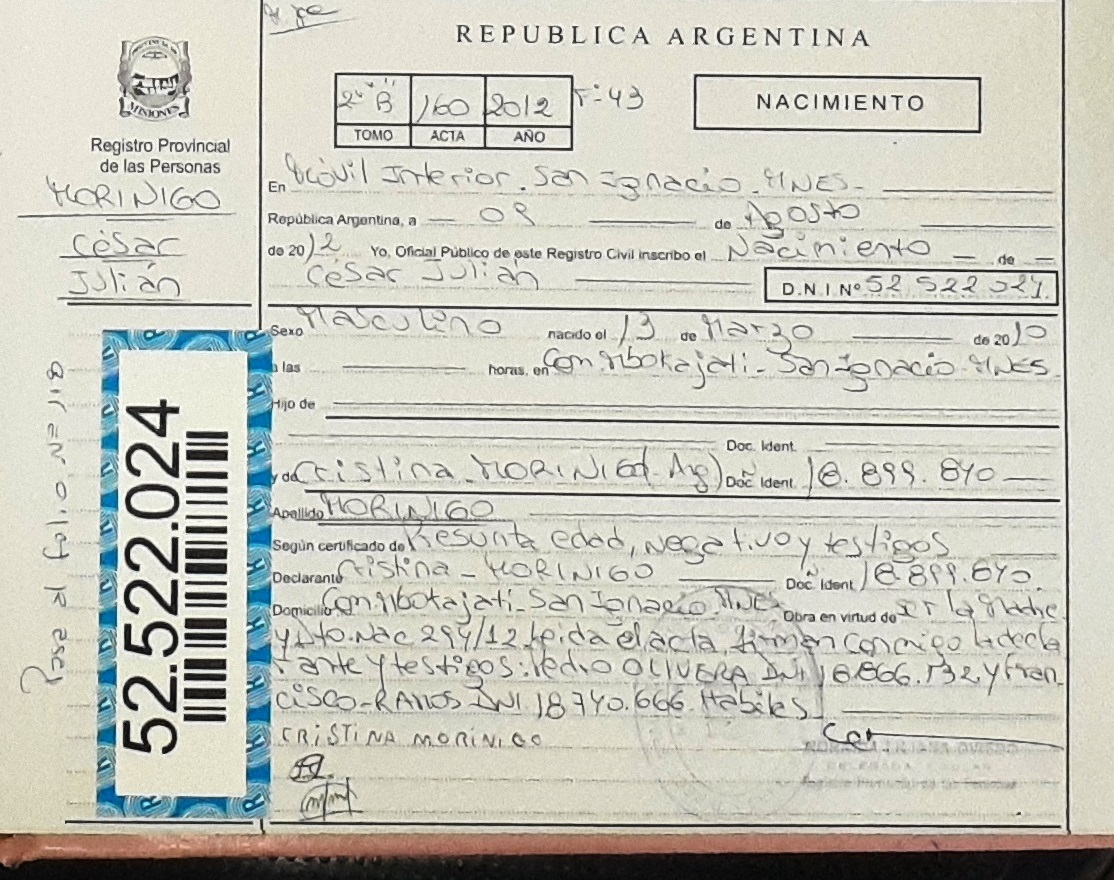 REPUBLICA ARGENTINA
MISIONES
Registro Provincial
de las Personas
MORINIGO
César
Julián
2º "B" 160 2012 Fº 43
TOMO ACTA AÑO
NACIMIENTO
En Móvil Interior. San Ignacio. MNES.
República Argentina, a 08 de Agosto
de 2012 Yo, Oficial Público de este Registro Civil inscribo el Nacimiento de
César Julián D.N.I Nº 52.522.024
Sexo Masculino nacido el 13 de Marzo de 2010
a las horas, en Com. Mbokajati - San Ignacio. MNES.
Hijo de
Doc. Ident.
y de Cristina MORINIGO (Arg) Doc. Ident. 18.899.840
Apellido MORINIGO
Según certificado de Presunta edad, negativo y testigos
Declarante Cristina - MORINIGO Doc. Ident. 18.899.840.
Domicilio Com. Mbokajati - San Ignacio MNES. Obra en virtud de ser la Madre
y Dto. Nac 294/12. Leída el acta, firman conmigo la decla
rante y testigos: Pedro OLIVERA DNI 18.866.732 y Fran
cisco - RAMOS DNI 18740.666. Hábiles
CRISTINA MORINIGO
52.522.024